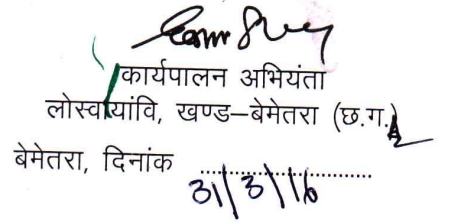 कार्यपालन अभियंता
लोस्वायांवि, खण्ड–बेमेतरा (छ.ग.)
बेमेतरा, दिनांक 31/3/16